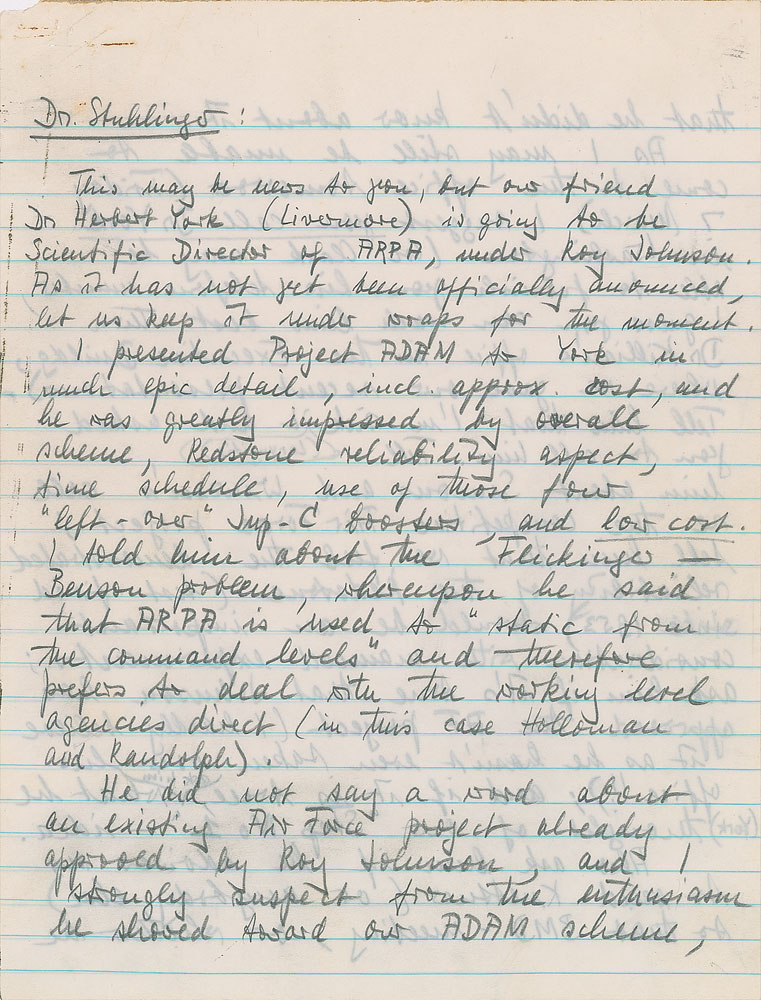 Dr. Stuhlinger :
This may be news to you, but our friend
Dr Herbert York (Livermore) is going to be
Scientific Director of ARPA, under Roy Johnson.
As it has not yet been officially anounced,
let us keep it under wraps for the moment.
I presented Project ADAM to York in
much epic detail, incl. approx. cost, and
he was greatly impressed by overall
scheme, Redstone reliability aspect,
time schedule, use of those four
"left-over" Jup-C boosters, and low cost.
I told him about the Flickinger –
Benson problem, whereupon he said
that ARPA is used to "static from
the command levels" and therefore
prefers to deal with the working level
agencies direct (in this case Holloman
and Randolph).
He did not say a word about
an existing Air Force project already
approved by Roy Johnson, and I
strongly suspect from the enthusiasm
he showed toward our ADAM scheme,